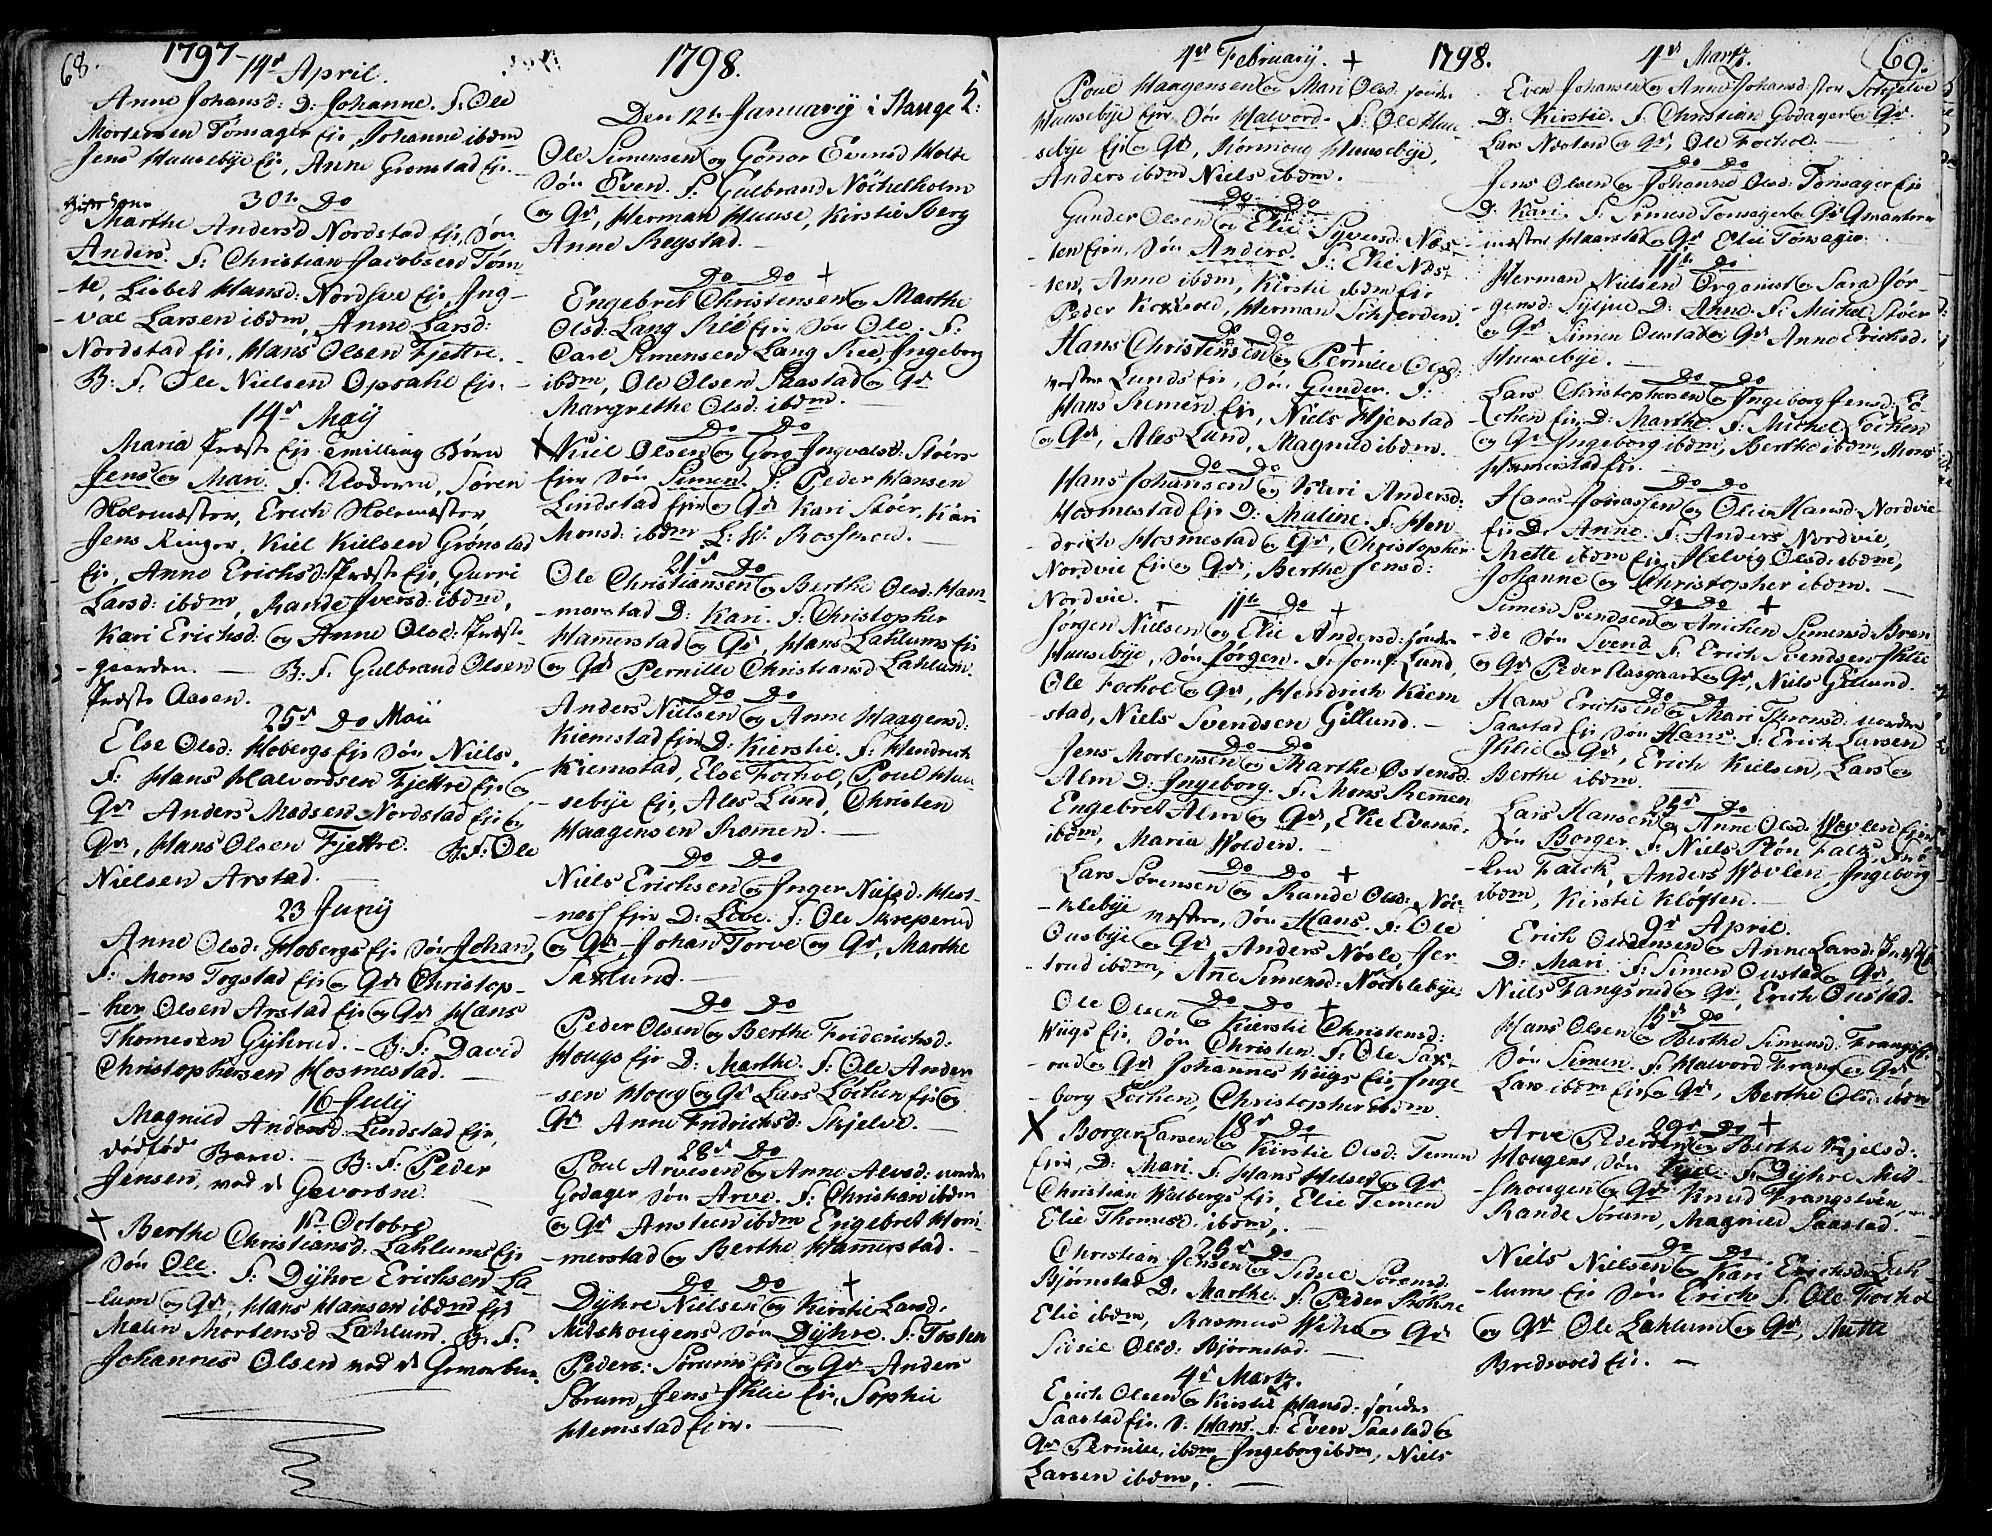 68.
1797
14de April.
Anne Johansd: D: Johanne. F: Ole
Mortensen Tønsager Eje, Johanne ibdm
Jens Huusebye Eje, Anne Grønstad Eje.
30te Do
Marthe Andersd Nordstad Eje, Søn
Anders. F: Christian Jacobsen Tøm-
te, Lisbet Hansd: Nordsve Eje, Ing-
val Larsen ibdm, Anne Larsd:
Nordstad Eje, Hans Olsen Fjettre.
B: F: Ole Nielsen Opsahl Eje.
14de Maij
Maria Præste Eje Tvilling Børn
Jens og Mari. F: Søren
Holemester, Erich Holemester
Jens Ringer, Kiel Kielsen Grønstad
Eje, Anne Erichsd: Præste Eje, Gurri
Larsd: ibdm, Rande Iversd: ibdm,
Kari Erichsd: og Anne Olsd: Præste-
gaarden. B: F: Gulbrand Olsen
Præste Aasen.
25de Do Maii
Else Olsd: Hobergs Eje Søn Niels.
F: Hans Halvordsen Fjettre Eje og
Qvr Anders Madsen Nordstad Eje og
Qvr, Hans Olsen Fjettre. B: F: Ole
Nielsen Arstad.
23 Junij
Anne Olsd: Hobergs Eje Søn Johan,
F: Mons Togstad Eje og Qvr Christop-
her Olsen Arstad Eje og Qvr Hans
Thomesen Gijhrud. B: F: David
Christophersen Hosmestad.
16 Julij
Magnild Andersd: Lindstad Eje,
dødfød Barn. B: F: Peder
Jensen, ved d Gevorbne.
1te Octobre
Berthe Christiansd: Lahlums Eje
Søn Ole. F: Dyhre Erichsen La-
lum og Qvr, Hans Hansen ibdm Eje
Malin Mortensd Lahlum. B: F:
Johannes Olsen ved d Gevorbne.
1798.
5
Den 12te Januarij i Stange
Ole Simensen og Gönor Evensd Holte
Søn Even. F: Gulbrand Nöchelholm
og Qvr, Herman Huuse, Kirstie Berg
Anne Reystad.
Do Do +
Engebret Christensen og Marthe
Olsd: Lang Ree Ejer Søn Ole. F:
Carl Simensen Lang Ree, Ingeborg
ibdm, Ole Olsen Saastad og Qvr
Margrethe Olsd: ibdm.
Do Do
X Kiel Olsen og Goro Ingvalsd: Støers
Ejer Søn Simen. F: Peder Hansen
Lindstad Ejer og Qvr Kari Støer, Kari
Monsd: ibdm
21de Do
Ole Christiansen og Berthe Olsd: Ham-
merstad D: Kari. F: Christopher
Hammerstad og Qvr, Hans Lahlums Eje
og Qvr Pernille Christiansd Lahlum.
Do Do
Anders Nielsen og Anne Haagensd:
Kiemstad Ejer D: Kierstie. F: Hendrich
Kiemstad, Else Fochol, Poul Huu-
sebye Eje, Ales Lund, Christen
Haagensen Romen.
Do Do
Niels Erichsen og Inger Nielsd: Hest-
ness Ejer D: Live. F: Ole Skreperud
og Qvr, Johan Torve og Qvr, Marthe
Saxlund.
Do Do
Peder Olsen og Berthe Friderichsd:
Hougs Eje D: Marthe. F: Ole Ander-
sen Houg og Qvr Lars Løchen Eje og
Qvr Anne Fridrichsd: Skjelve.
28de Do
Poul Arvesen og Anne Alvsd: nordre
Godager Søn Arve. F: Christian ibdm
og Qvr Ansteen ibdm Engebret Ham-
merstad og Berthe Hammerstad.
Do Do +
Dyhre Nielsen og Kirstie Larsd:
Mitskougens Søn Dyhre. F: Tosten
Peders: Sørums Eje og Qvr Anders
Sørum, Jens Ihlie Eje, Sophie
Hemstad Ejer.
4de Februarij. +
Poul Haagensen og Mari Olsd: søndre
Huusebye Ejer Søn Halvord. F: Ole Huu-
sebye Eje og Qvr, Huusebye,
Anders ibdm Niels ibdm.
Do Do
Gunder Olsen og Elie Syversd: Næs-
ten Ejer, Søn Anders. F: Elie Næs-
ten, Anne ibdm, Kirstie ibdm Eje
Peder Korsved, Herman Schjerden.
Do Do +
Hans Christensen og Pernille Olsd:
vestre Lunds Eje, Søn Gunder. F:
Hans Remen Eje, Niels Hjerstad
og Qvr, Ales Lund, Magnild ibdm.
Do Do
Hans Johansen og Kari Andersd:
Hosmestad Eje D: Maline. F: Hen-
drich Hosmestad og Qvr, Christopher
Nordvie Eje og Qvr, Berthe Jensd:
Nordvie.
11te Do +
Jørgen Nielsen og Elie Andersd: søndre
Huusebye, Søn Jørgen. F: Lund,
Ole Fochol og Qvr, Hendrich Kiem-
stad, Niels Svendsen Gillund.
Do Do
Jens Mortensen og Marthe Østensd:
Alm D: Ingeborg. F: Mons Remen
Engebret Alm og Qvr, Elie Evensd:
ibdm, Maria Wolden.
Do Do +
Lars Sørensen og Rande Olsd: Nöc-
klebye vestre, Søn Hans. F: Ole
Ousbye og Qvr, Anders Nösle, Jer-
trud ibdm, Anne Simensd: Nöcklebye.
Do Do +
Ole Olsen og Kierstie Christensd:
Wiigs Eje, Søn Christen. F: Ole Sax-
rud og Qvr Johannes Wiigs Eje, Inge-
borg Løchen, Christopher ibdm.
18de Do
X Borger Larsen og Kirstie Olsd: Temen
Ejer, D: Mari. F: Hans Helset og Qvr
Christian Walbergs Eje, Elie Temen
Elie Thomesd: ibdm,
25de Do
Christian Jensen og Sidsele Sørensd:
Bjørnstad D: Marthe. F: Peder Bøhne
Elie ibdm, Rasmus og Qvr
Sidsele Olsd: Bjørnstad.
4de Martz.
Erich Olsen og Kirstie Hansd: søndre
Saastad Eje. S: Hans. F: Even Saastad og
Qvr Pernille ibdm, Ingeborg ibdm, Niels
Larsen ibdm,
1798.
4de Martz
69.
Even Johansen og Anne Johansd: stor Schjelve
D: Kirstie. F: Christian Godager og Qvr.
Lars Næsten og Qvr, Ole Fochol.
Do Do
Jens Olsen og Johanne Olsd: Tønsager Eje
D: Kari. F: Simen Tønsager og Qvr Qvarteer-
mester Haarstad og Qvr Elie Tønsager.
11te Do
Herman Nielsen Organist og Sara Jør-
gensd: D: Anne. F: Michel Støer
og Qvr Simen Oustad og Qvr Anne Erichsd:
Huusebye.
Do Do
Lars Christophersen og Ingeborg Jensd: Lø-
chen Eje D: Marthe. F: Michel Løchen
og Qvr Ingeborg ibdm, Berthe ibdm, Mons
Hamerstad Eje.
Do Do
Hans Jonassen og Olia Hansd: Nordvie
Eje D: Anne. F: Anders Nordvie,
Mette ibdm Eje, Helvig Olsd: ibdm,
Johanne og Christopher ibdm.
Do Do +
Simen Svendsen og Anichen Simensd: Bran-
de Søn Svend F: Erich Svendsen Ihlie
og Qvr Peder Aasgaard og Qvr, Niels Gillund.
Do Do
Hans Erichsen og Mari Thronsd: nordre
Saastad Eje Søn Hans. F: Erich Larsen
Ihlie og Qvr, Erich Kielsen, Lars og
Berthe ibdm.
25de Do
Lars Hansen og Anne Olsd: Wevlen Ejer
Søn Borger. F: Niels Falck,
Falck, Anders Wevlen, Ingeborg
ibdm, Kirstie Kløften.
9de April.
Erich og Anne Larsd: Præste Eje
D: Mari. F: Simen Oustad og Qvr,
Niels Fangsrud og Qvr, Erich Oustad.
15de Do
Hans Olsen og Berthe Simensd: Frangs Eje
Søn Simen. F: Halvord Frang og Qvr
Lars ibdm Eje og Qvr, Berthe Olsd: ibdm
29de Do +
Arve Pedersen og Berthe Kjelsd:
Hougens Søn F: Dyhre Mit-
skougen og Qvr Knud Frangstøen,
Rande Sørum, Magnild Saastad.
Do Do
Niels Nielsen og Kari Erichsd: Lah-
lums Eje Søn Erich. F: Ole Fochol
og Qvr Ole Lahlum og Qvr, Mette
Bredsvold Eje.